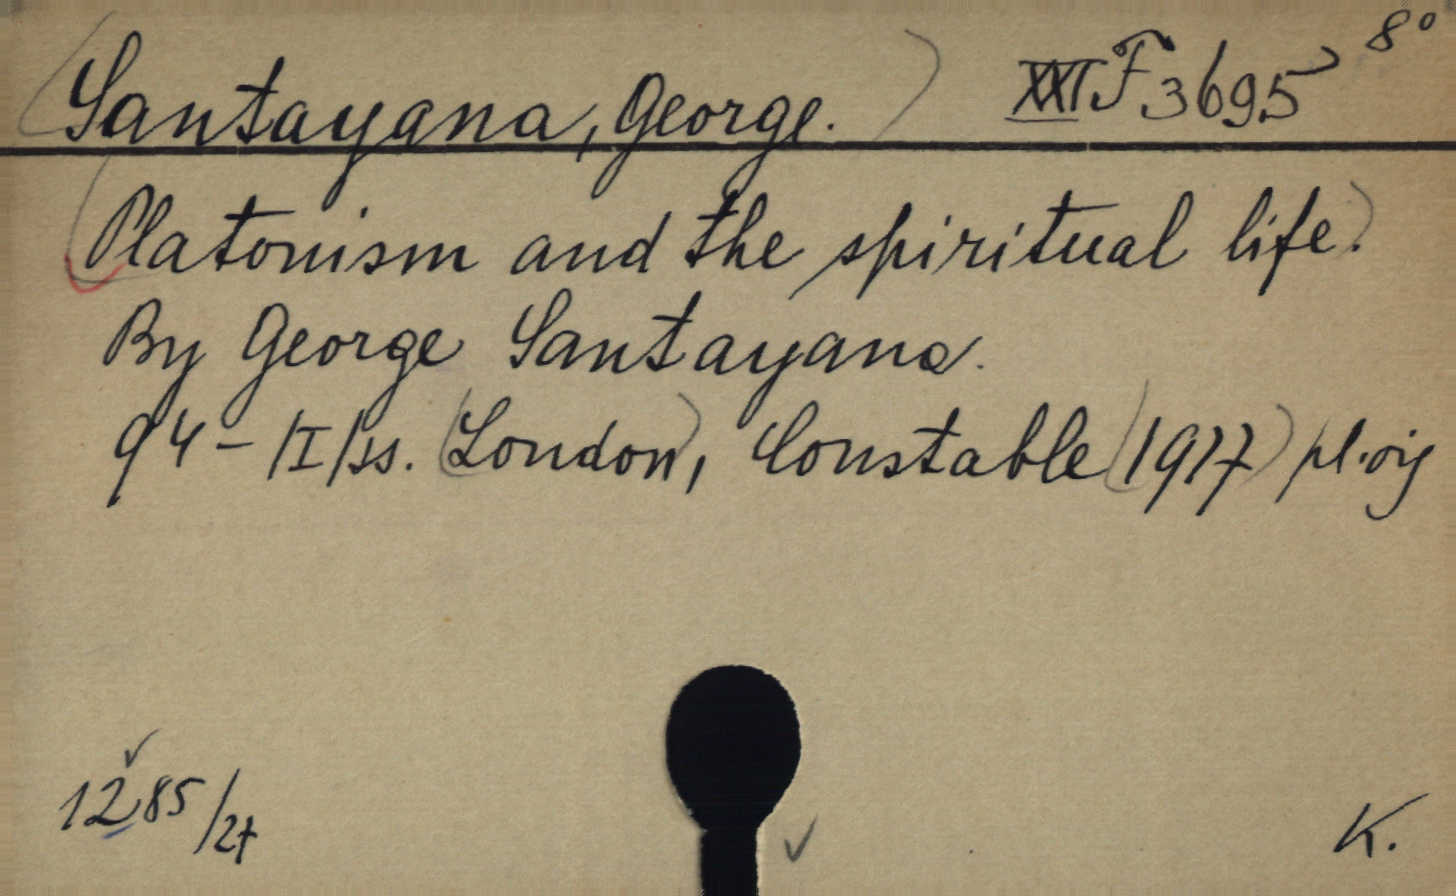 Santayana, George. XXI F 3695 8°
Platonism and the spiritual life.
By George Santayana.
94 - /I/ ss. (London), Constable (1927) pl. oij
1285/27
K.